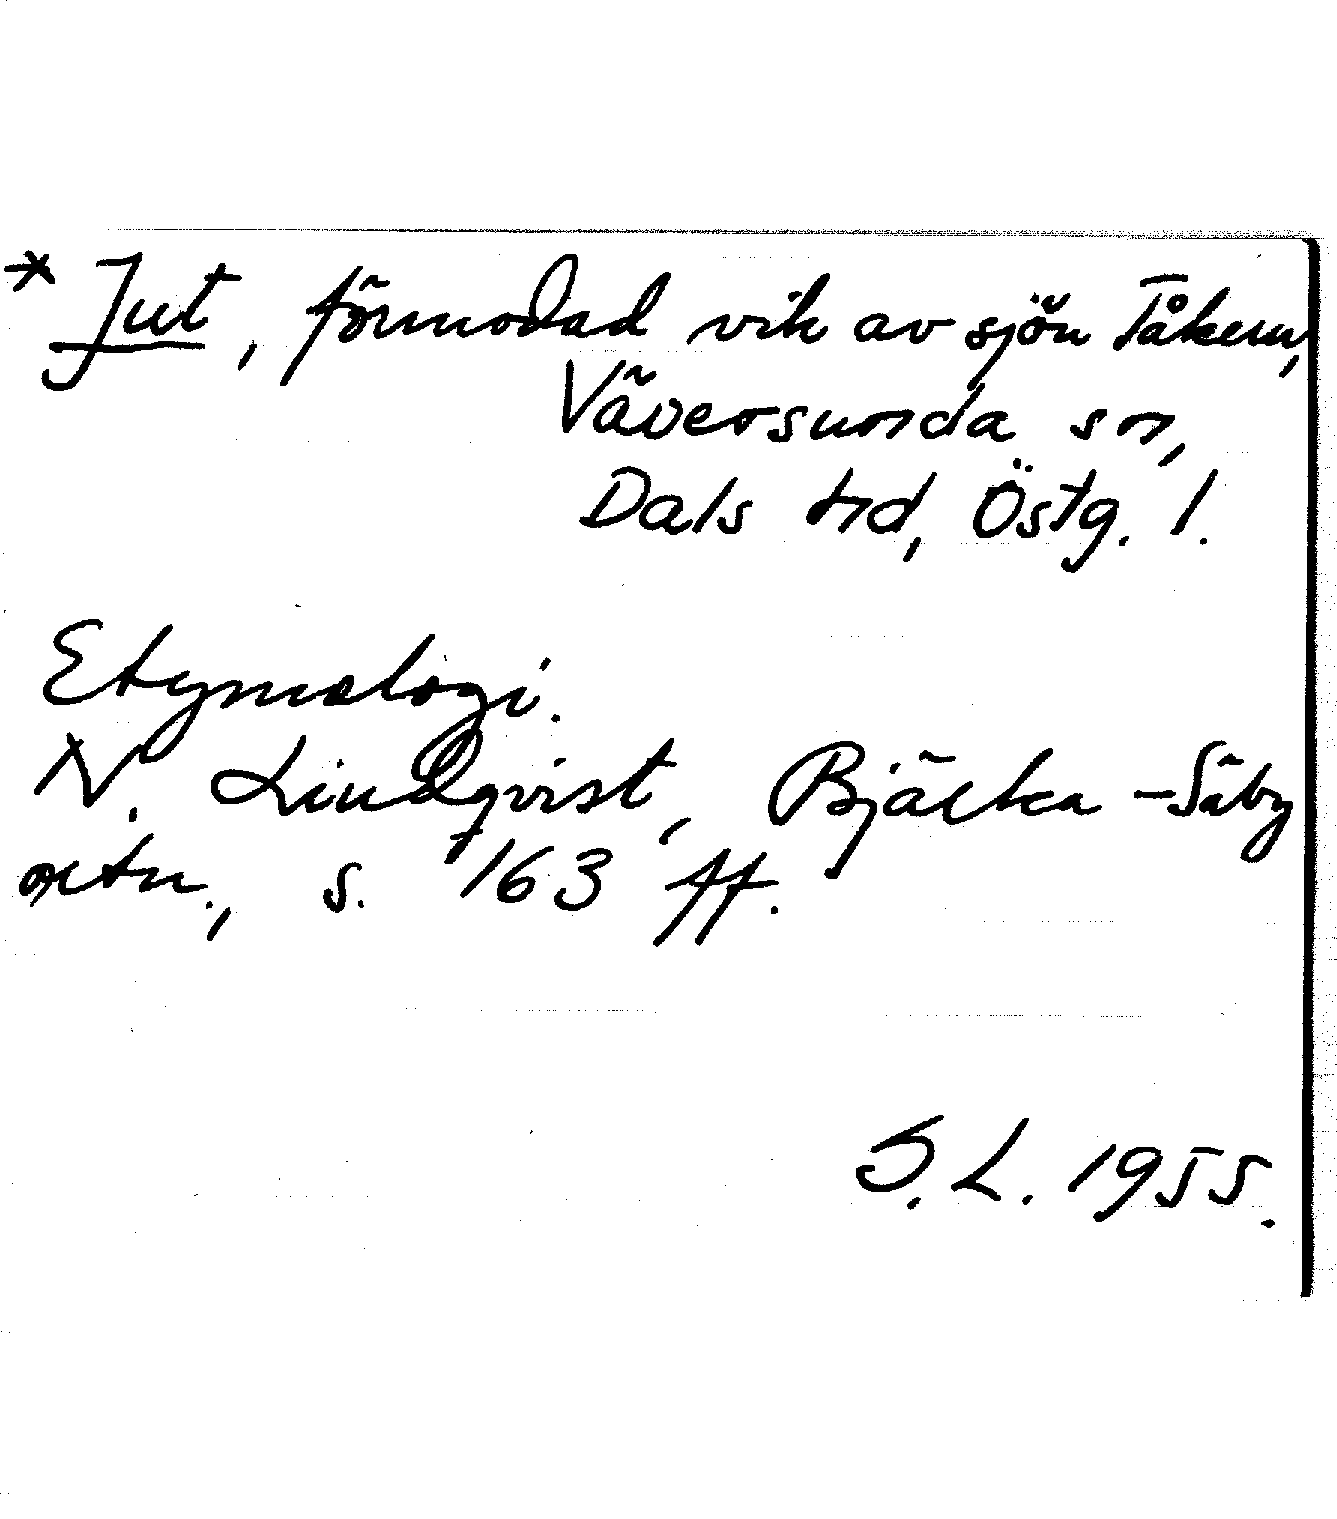 * Jut, förmodad vik av sjön Tåkern,
Väversunda sn,
Dals hd, Östg. l.
Etymologi.
N. Lindqvist, Bjärka-Säby
ortn., s. 163 ff.
S. L. 1955.